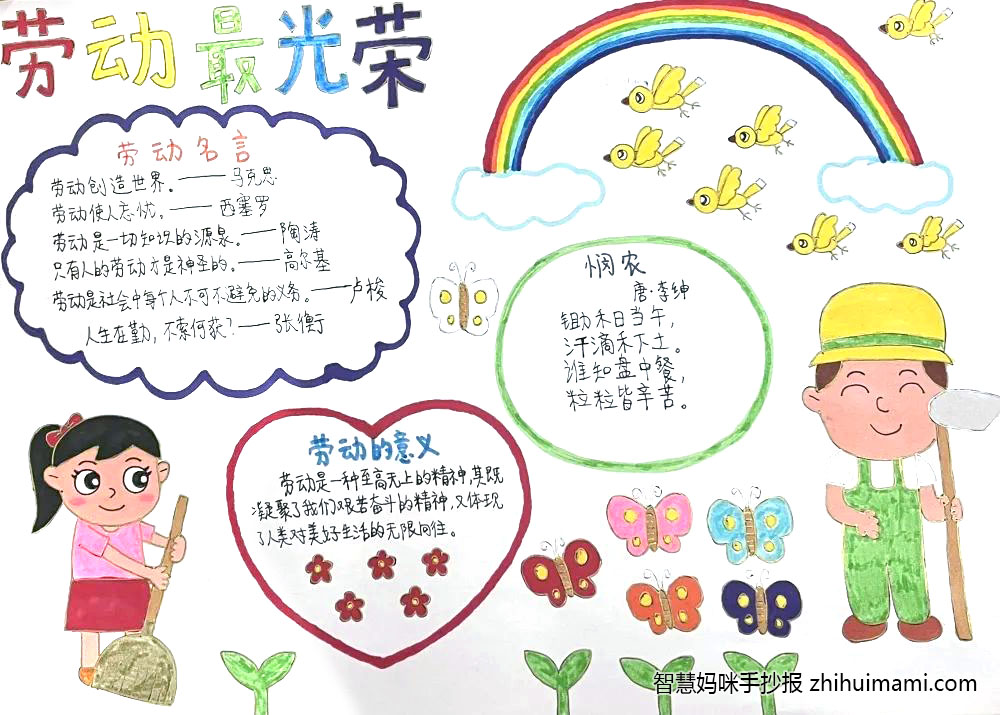 劳动最光荣
劳动名言
劳动创造世界。——马克思
劳动使人忘忧。——西塞罗
劳动是一切知识的源泉。——陶涛
只有人的劳动才是神圣的。——高尔基
劳动是社会中每个人不可不避免的义务。——卢梭
人生在勤，不索何获？——张衡
悯农
唐·李绅
锄禾日当午，
汗滴禾下土。
谁知盘中餐，
粒粒皆辛苦。
劳动的意义
劳动是一种至高无上的精神，其既
凝聚了我们艰苦奋斗的精神，又体现
了人类对美好生活的无限向往。
智慧妈咪手抄报 zhihuimami.com